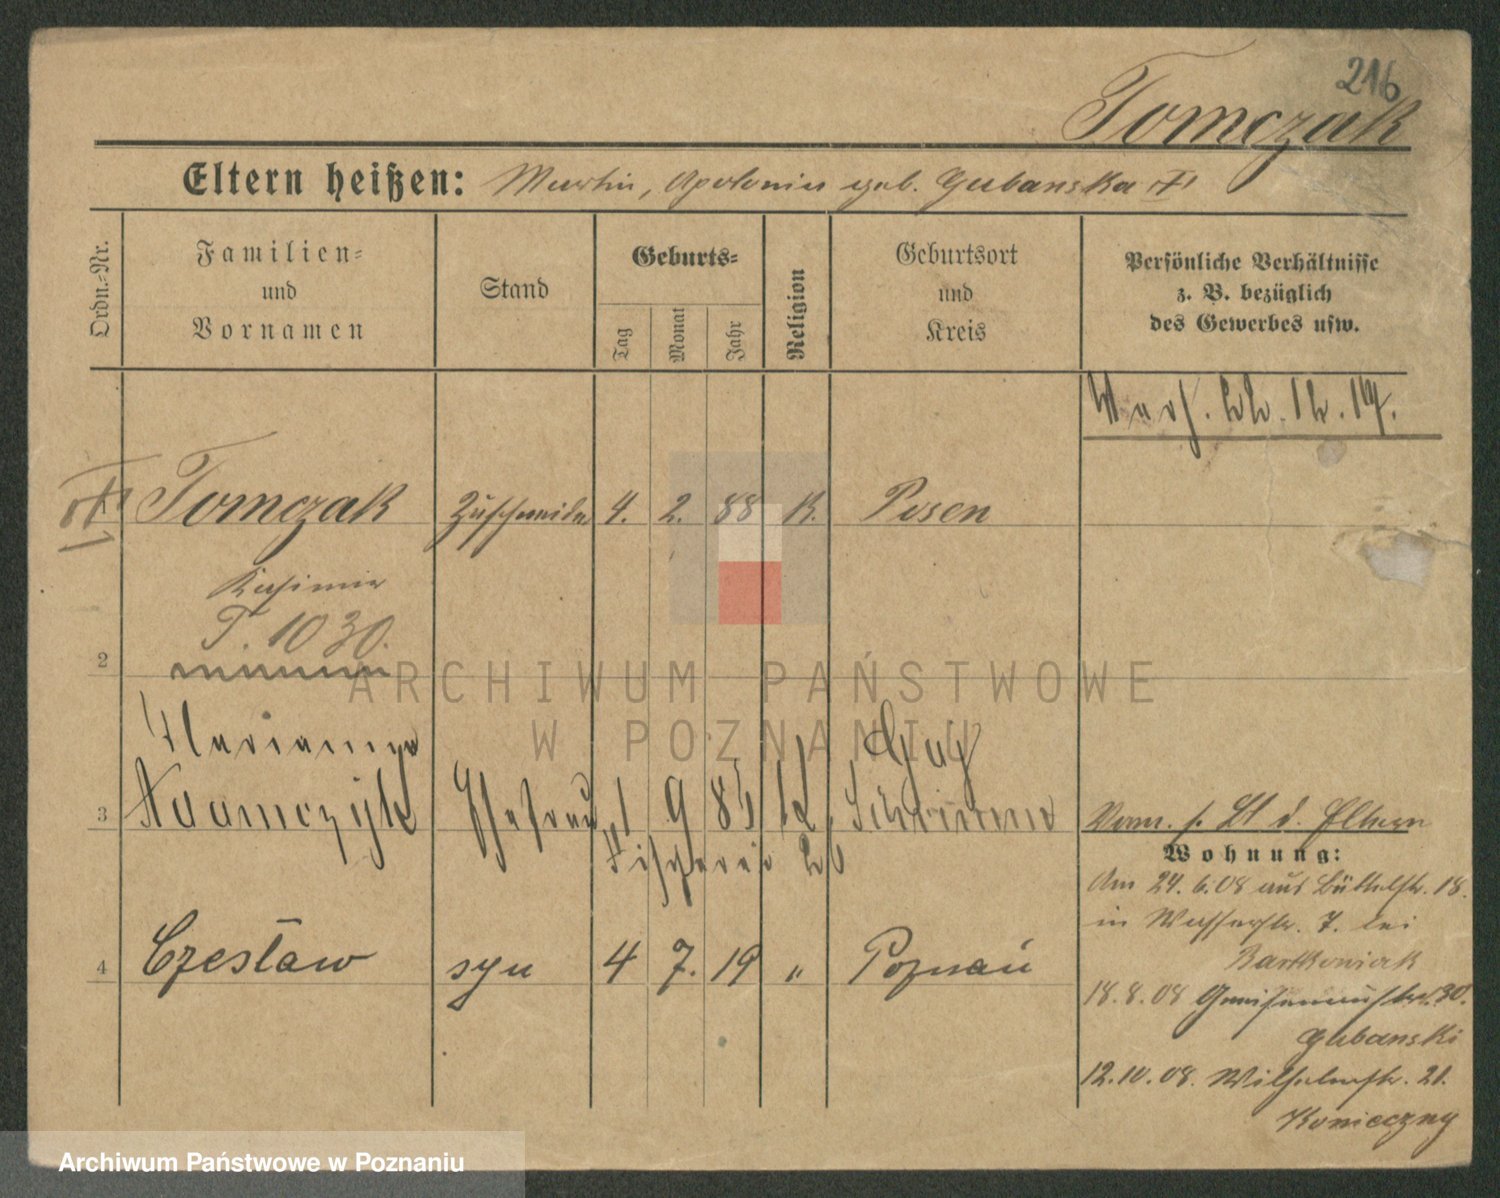 216
Tomczak
Eltern heißen: Martin, Apolonia geb. Gubanska
Ordn.-Nr.
Familien- und Vornamen
Stand
Geburts-
Tag
Monat
Jahr
Religion
Geburtsort und Kreis
Persönliche Verhältnisse z. B. bezüglich des Gewerbes usw.
22.12.14.
Tomczak Zuschneider 4. 2. 88 K. Posen
Kasimir
T. 1030.
2
Marianna
Adamczyk Ehefrau 1 9 85 K.
3
Fischerei 26
Verm. s. Bl d. Eltern
Wohnung:
Am 24.6.08 aus Büttelstr. 18.
in Wasserstr. 7. bei
Bartkowiak
4 Czesław syn 4 7. 19 " Poznań
18.8.08 Gneisenaustr. 30.
Gubanski
12.10.08. Wilhelmstr. 21.
Konieczny
ARCHIWUM PAŃSTWOWE
W POZNANIU
Archiwum Państwowe w Poznaniu